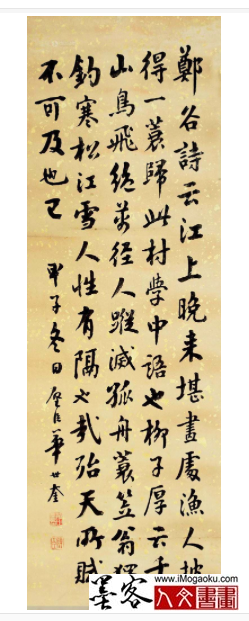 鄭谷詩云江上晚来堪畫處漁人披
得一蓑歸此村學中語也柳子厚云千
山鳥飛絶萬径人蹤滅孤舟蓑笠翁獨
釣寒松江雪人性有隔也哉殆天所賦
不可及也已
甲子冬日璧臣華世奎
墨客
www.iMogaoku.com
人文書畫